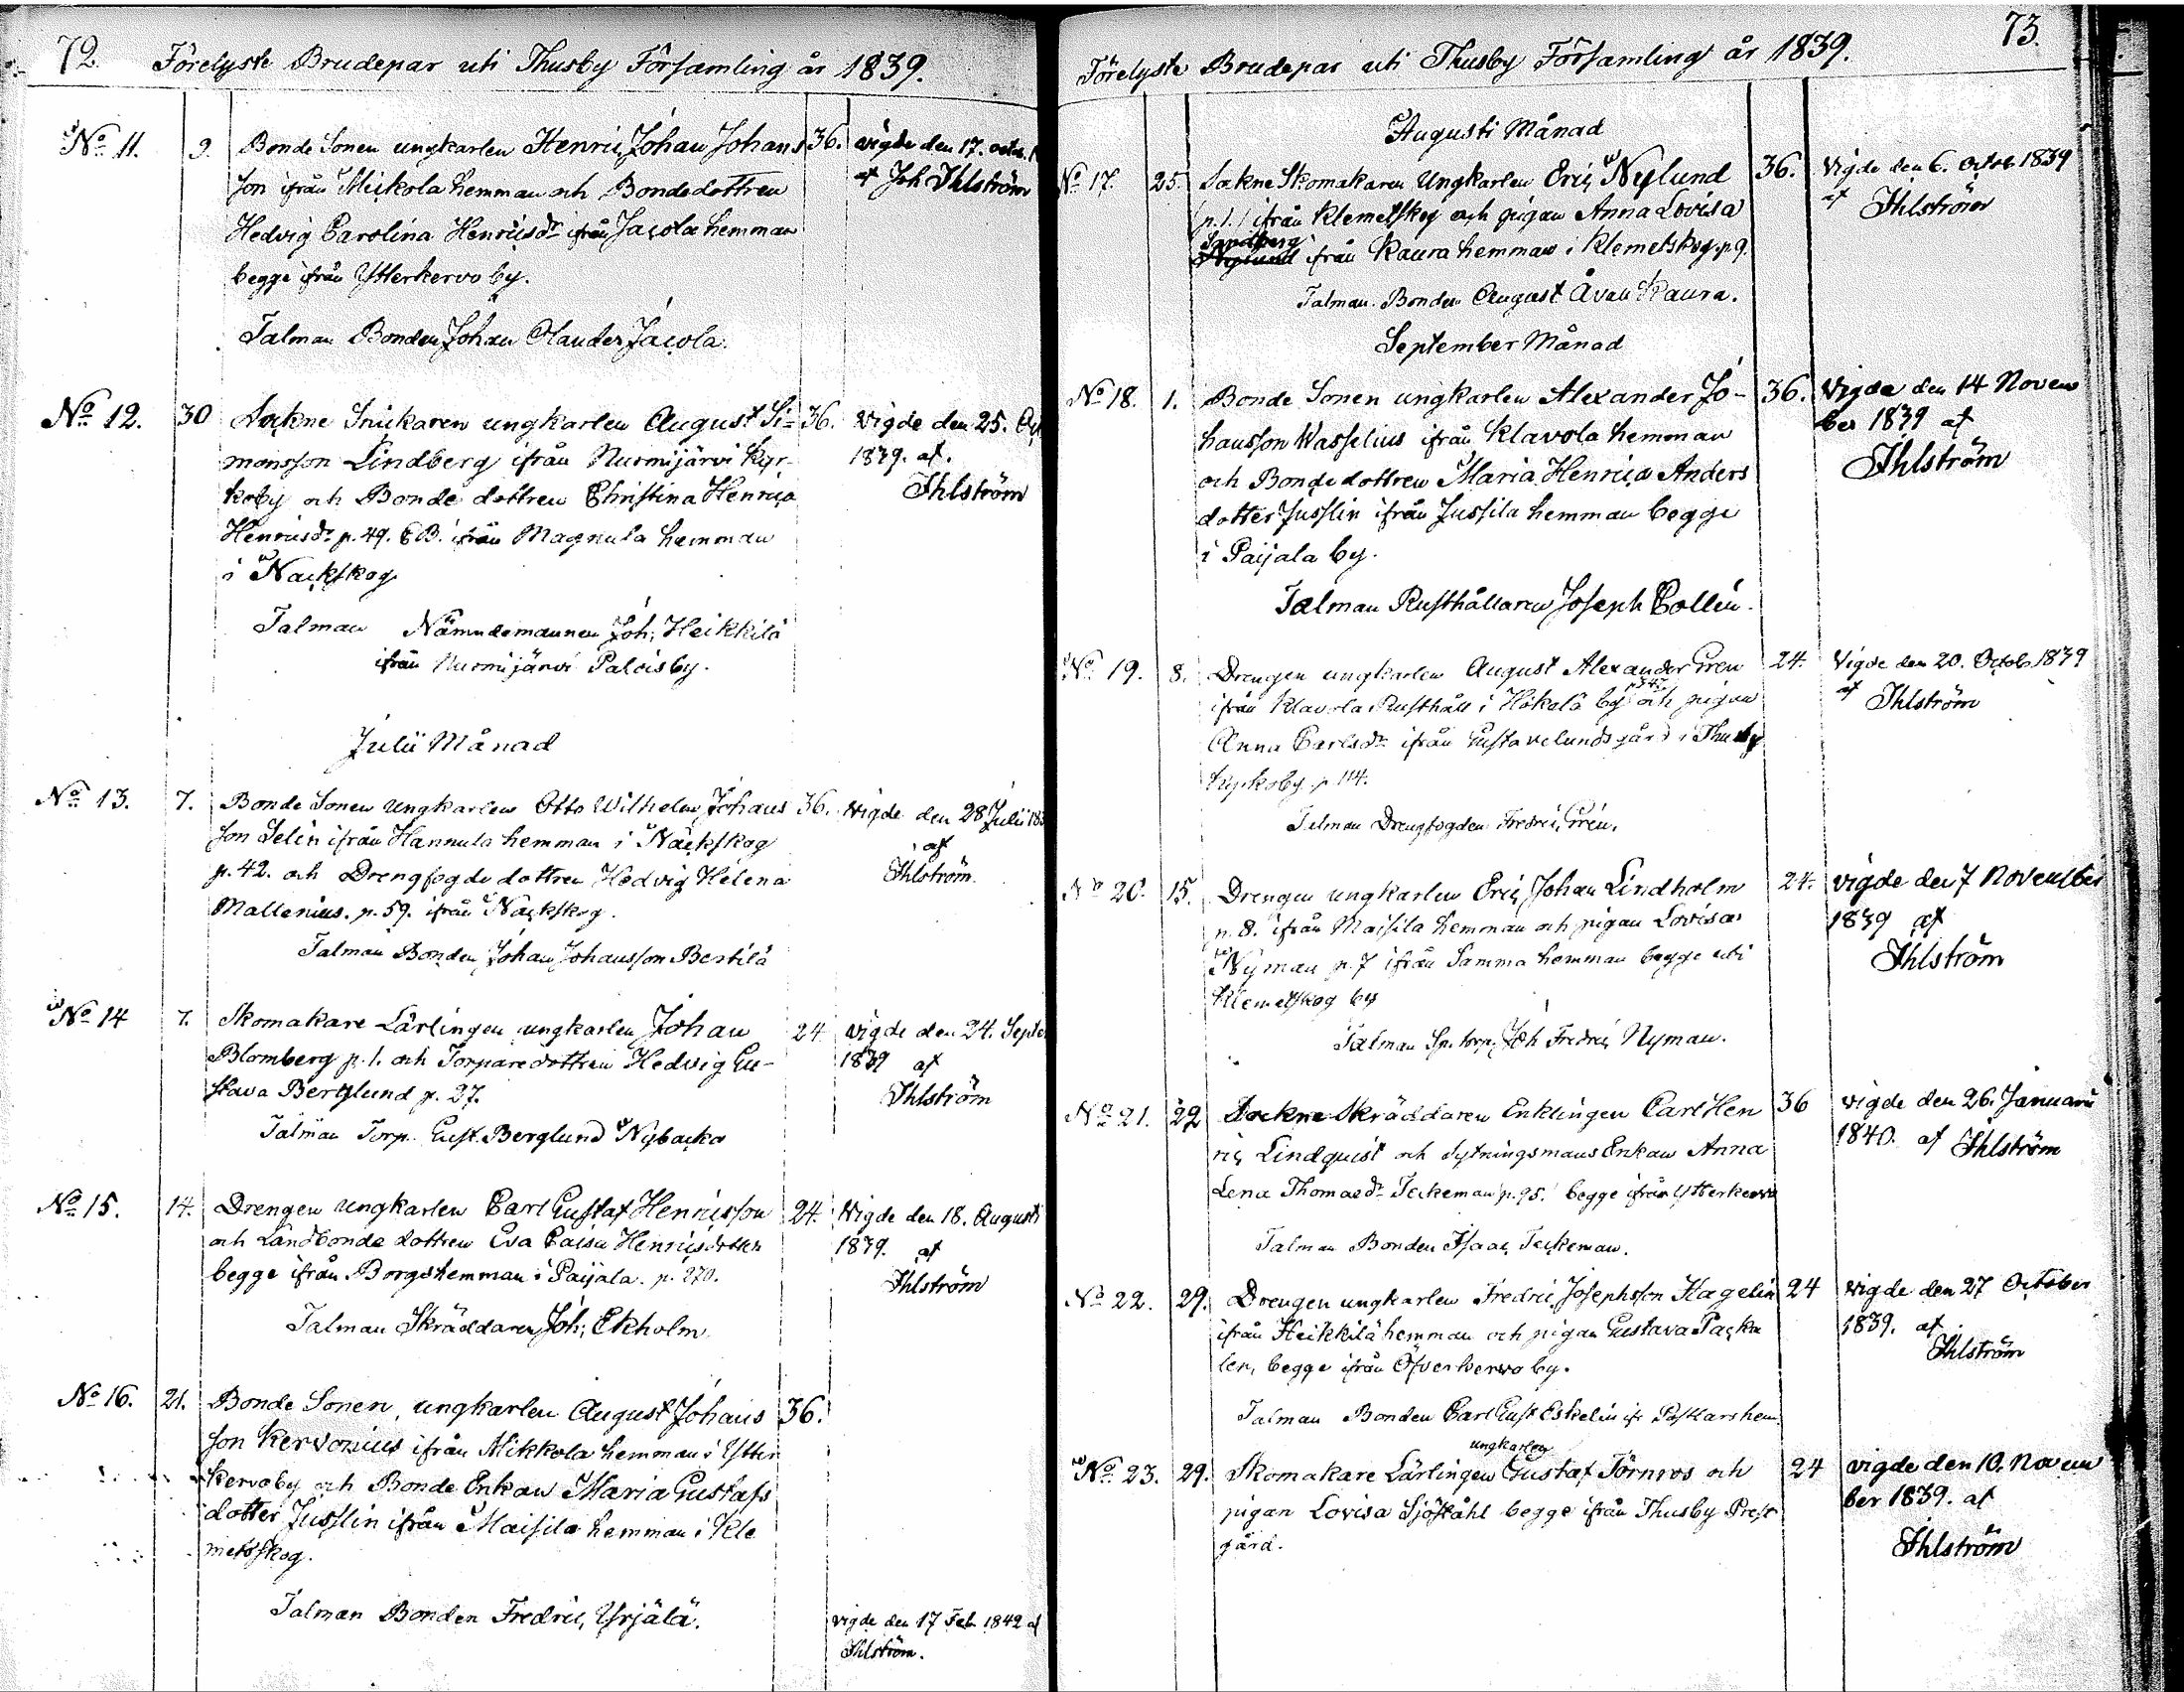 72. Förelyste Brudepar uti Thusby Församling år 1839.
No 11. 9. Bonde Sonen ungkarlen Henric Johan Johans 36. vigde den 17. octob.
son ifrån Mickola hemman och Bondedottren af Joh Ihlström
Hedvig Carolina Henricsdr ifrån Jacola hemman
begge ifrån Ytterkervo by.
Talman Bonden Johan Olander Jacola.
No 12. 30 Sokne Snickaren ungkarlen August Si- 36. vigde den 25.
monsson Lindberg ifrån Nurmijärvi Kyr- 1839. af.
koby och Bonde dottren Christina Henrica Ihlström
Henricsdr p. 49. C B. ifrån Magnula hemman
i Nackskog
Talman Nämndemannen Joh; Heikkilä
ifrån Nurmijärvi Palois by.
Julii Månad
No 13. 7. Bonde Sonen Ungkarlen Otto Wilhelm Johans 36. vigde den 28 Julii
son Selin ifrån Hannula hemman i Näckskog af
p. 42. och Drengfogde dottren Hedvig Helena Ihlström.
Mallenius. p. 59. ifrån Näckskog.
Talman Bonden Johan Johansson Bertilä
No 14 7. Skomakare Lärlingen ungkarlen Johan 24 vigde den 24. Septe
Blomberg p. 1. och Torparedottren Hedvig Gu- 1839 af
stava Berglund p. 27. Ihlström
Talman Torp. Gust. Berglund Nybacka
No 15. 14. Drengen ungkarlen Carl Gustaf Henricsson 24. Vigde den 18. Augusti
och Landbonde dottren Eva Caisa Henricsdotter 1839. af
begge ifrån Borgs hemman i Paijala. p. 270. Ihlström
Talman Skräddaren Joh; Ekholm
No 16. 21. Bonde Sonen, ungkarlen August Johans 36.
son Kervonius ifrån Mikkola hemman i Ytter
kervoby och Bonde Enkan Maria Gustafs
dotter Jusslin ifrån Maisila hemman i Kle
metsskog.
Talman Bonden Fredric Yrjälä.
vigde den 17 Feb 1842 af
Ihlström.
Förelyste Brudepar uti Thusby Församling år 1839. 73.
Augusti Månad
No 17. 25. Sokne Skomakaren Ungkarlen Eric Nylund 36. Vigde den 6. octob 1839
p. 1. ifrån Klemetskog och pigan Anna Lovisa af Ihlström
Sandberg
Nylund ifrån Kaura hemman i Klemetskog. p 9.
Talman. Bonden August Åvall Kaura.
September Månad
No 18. 1. Bonde Sonen ungkarlen Alexander Jo- 36. Vigde den 14 Novem
hansson Wasselius ifrån Klavola hemman ber 1839 af
och Bondedottren Maria Henrica Anders Ihlström
dotter Jusslin ifrån Jussila hemman begge
i Paijala by.
Talman Rusthållaren Joseph Collin.
No 19. 8. Drengen ungkarlen August Alexander Gren 24. Vigde den 20. Octob 1839
p 347
ifrån Klavola Rusthåll i Hökolä by och pigan af Ihlström
Anna Carlsdr ifrån Gustavelunds gård i Thusby
kyrkoby. p 114.
Talman Drengfogden Fredric Grén.
No 20. 15. Drengen ungkarlen Eric Johan Lindholm 24. vigde den 7 November
p. 8. ifrån Maisila hemman och pigan Lovisa 1839 af
Nyman p. 7 ifrån Samma hemman begge uti Ihlström
Klemetskog by
Talman Sp. torp. Joh Fredric Nyman.
No 21. 22 Sockne Skräddaren Enklingen Carl Hen 36 vigde den 26. Januarii
ric Lindquist och Sytningsmans Enkan Anna 1840. af Ihlström
Lena Thomasdr Teckeman p. 95. begge ifrån Ytterkervo
Talman Bonden Isaac Teckeman.
No 22. 29. Drengen ungkarlen Fredric Josephsson Hagelin 24 vigde den 27 October
ifrån Heikkilä hemman och pigan Gustava Packa 1839. af
len, begge ifrån Öfverkervo by. Ihlström
Talman Bonden Carl Gust Eskelin ifr Postlars hem.
ungkarlen
No 23. 29. Skomakare Lärlingen Gustaf Törnros och 24 vigde den 10. Novem
pigan Lovisa Sjöståhl begge ifrån Thusby Prest ber 1839. af
gård. Ihlström